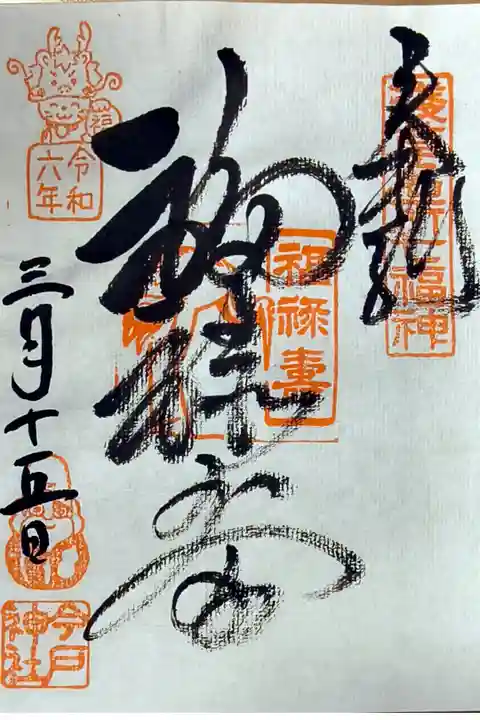 奉拝
淺草名所七福神
福禄寿
福禄壽
福
令和
六年
三月十五日
今戸
神社